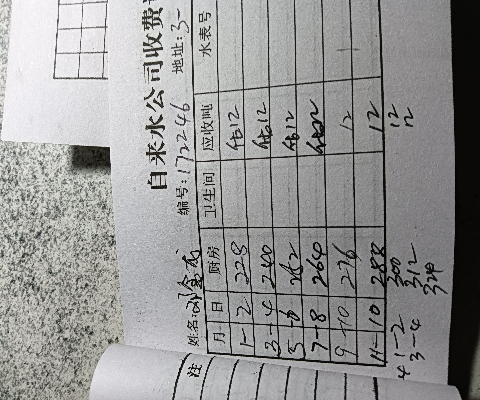 自来水公司收费
编号:172246 地址:3-
姓名:
月 日 厨房 卫生间 应收吨 水表号
1-2 228 12
3-4 240 12
5-6 252 12
7-8 264
9-10 276 12
11-10 288 12
1-2 300 12
3-4 312 12
324
注